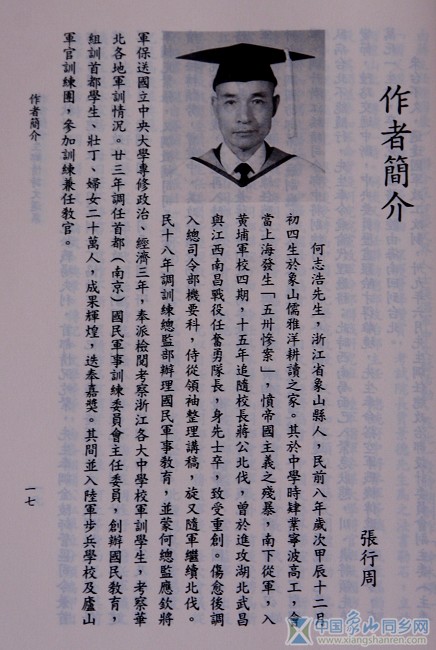 作者簡介
張行周
何志浩先生，浙江省象山縣人，民前八年歲次甲辰十二月
初四生於象山儒雅洋耕讀之家。其於中學時肄業寧波高工，會
當上海發生「五卅慘案」，憤帝國主義之殘暴，南下從軍，入
黃埔軍校四期，十五年追隨校長蔣公北伐，曾於進攻湖北武昌
與江西南昌戰役任奮勇隊長，身先士卒，致受重創。傷愈後調
入總司令部機要科，侍從領袖整理講稿，旋又隨軍繼續北伐。
民十八年調訓練總監部辦理國民軍事教育，並蒙何總監應欽將
軍保送國立中央大學專修政治、經濟三年，奉派檢閱考察浙江各大中學校軍訓學生，考察華
北各地軍訓情況。廿三年調任首都（南京）國民軍事訓練委員會主任委員，創辦國民教育，
組訓首都學生、壯丁、婦女二十萬人，成果輝煌，迭奉嘉獎。其間並入陸軍步兵學校及廬山
軍官訓練團，參加訓練兼任教官。
作者簡介
一七
中国象山同乡网
www.xiangshanren.com